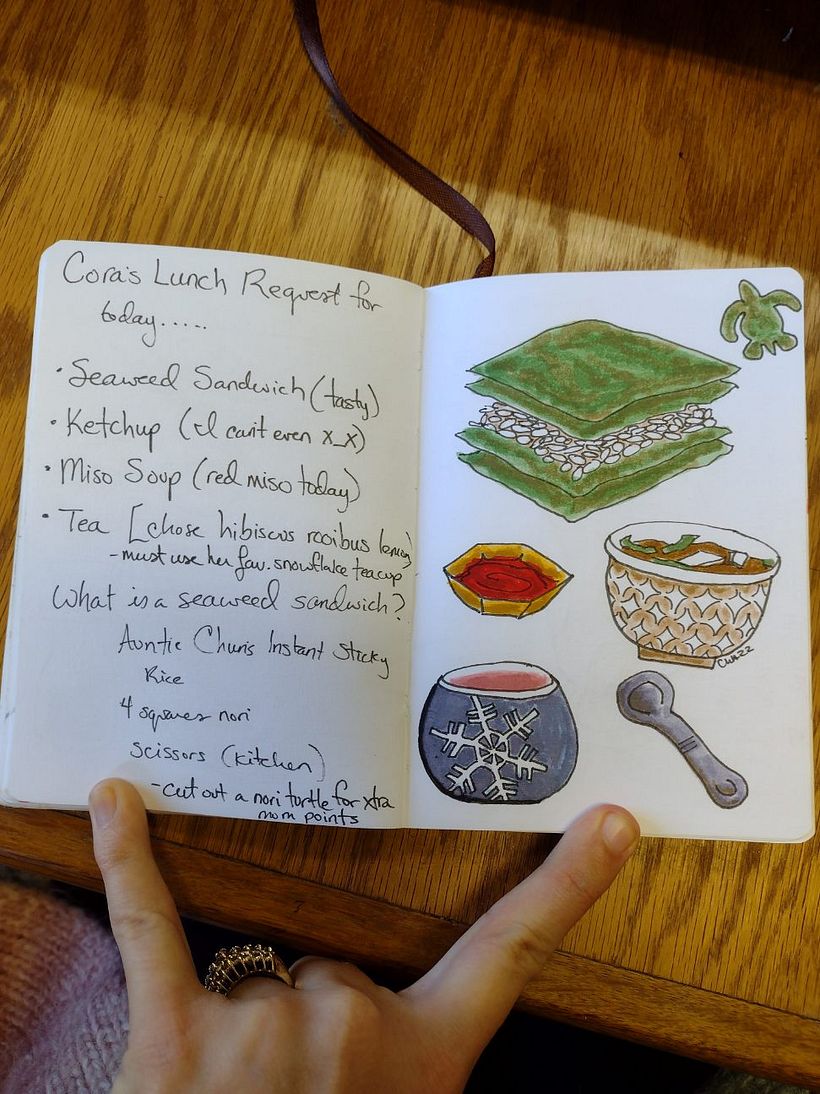 Cora's Lunch Request for
today.....
• Seaweed Sandwich (tasty)
• Ketchup (I can't even x_x)
• Miso Soup (red miso today)
• Tea [chose hibiscus rooibus lemon]
- must use her fav. snowflake teacup
What is a seaweed sandwich?
Auntie Chun's Instant Sticky
Rice
4 squares nori
scissors (kitchen)
- cut out a nori turtle for xtra
mom points